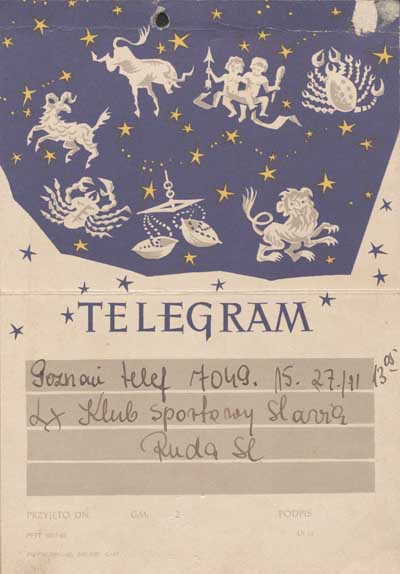 TELEGRAM
Poznań telef 7049. 15. 27./11 13 05
Lx Klub Sportowy Slavia
Ruda Sl
PRZYJĘTO DN. GM. 2 PODPIS